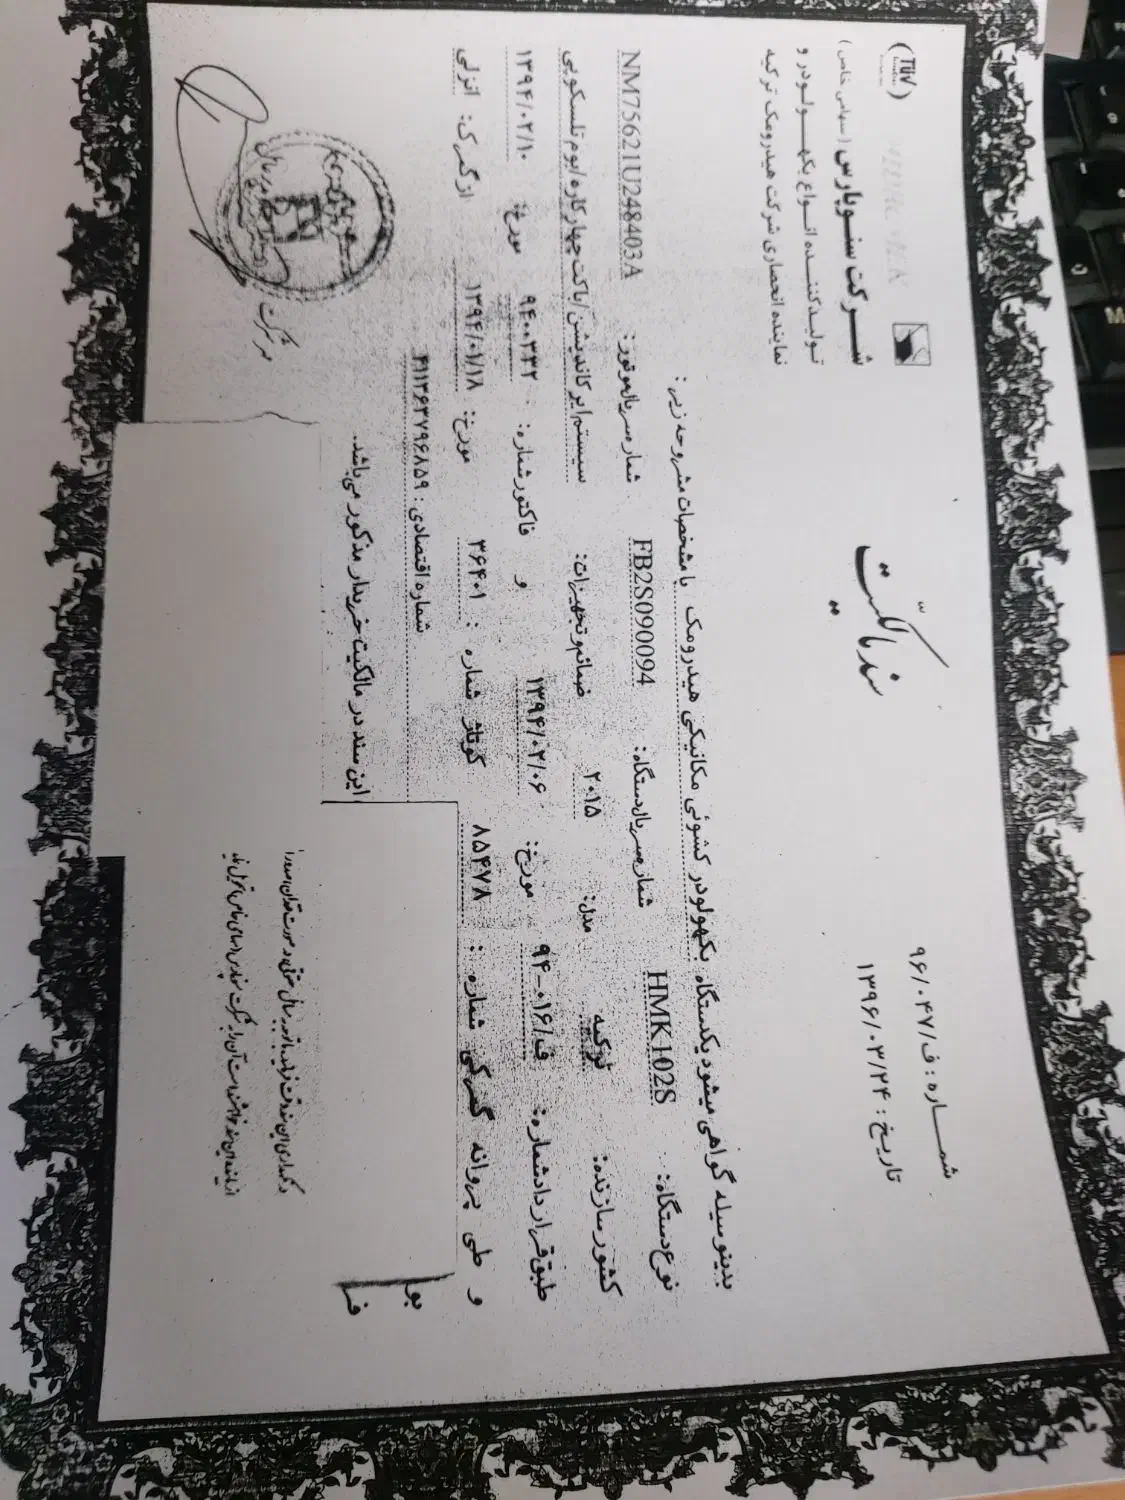 TÜV
شرکت سنوپارس (سهامی خاص)
تولیدکننده انواع بکهولودر و
نماینده انحصاری شرکت هیدرومک ترکیه
سند مالکیت
شماره : ف/۹۶/۰۴۷
تاریخ : ۱۳۹۶/۰۳/۲۴
بدینوسیله گواهی میشود یکدستگاه بکهولودر کشوئی مکانیکی هیدرومک با مشخصات مشروحه زیر :
نوع دستگاه: HMK102S شماره سریال دستگاه: FB2S090094 شماره سریال موتور: NM75621U248403A
کشور سازنده: ترکیه مدل: ۲۰۱۵ ضمائم و تجهیزات: سیستم ایر کاندیشن/باکت چهارکاره/بوم تلسکوپی
طبق قرارداد شماره: ف/۹۴-۰۱۶ مورخ: ۱۳۹۴/۰۲/۰۶ و فاکتور شماره: ۹۴۰۰۲۳۲ مورخ: ۱۳۹۴/۰۲/۱۰
و طی پروانه گمرکی شماره : ۸۵۴۷۸ کوتاژ شماره : ۳۶۴۰۱ مورخ: ۱۳۹۴/۰۱/۱۸ از گمرک: انزلی
شماره اقتصادی : ۴۱۱۳۶۳۷۹۶۸۵۹
این سند در مالکیت خریدار مذکور می باشد.
مهر شرکت